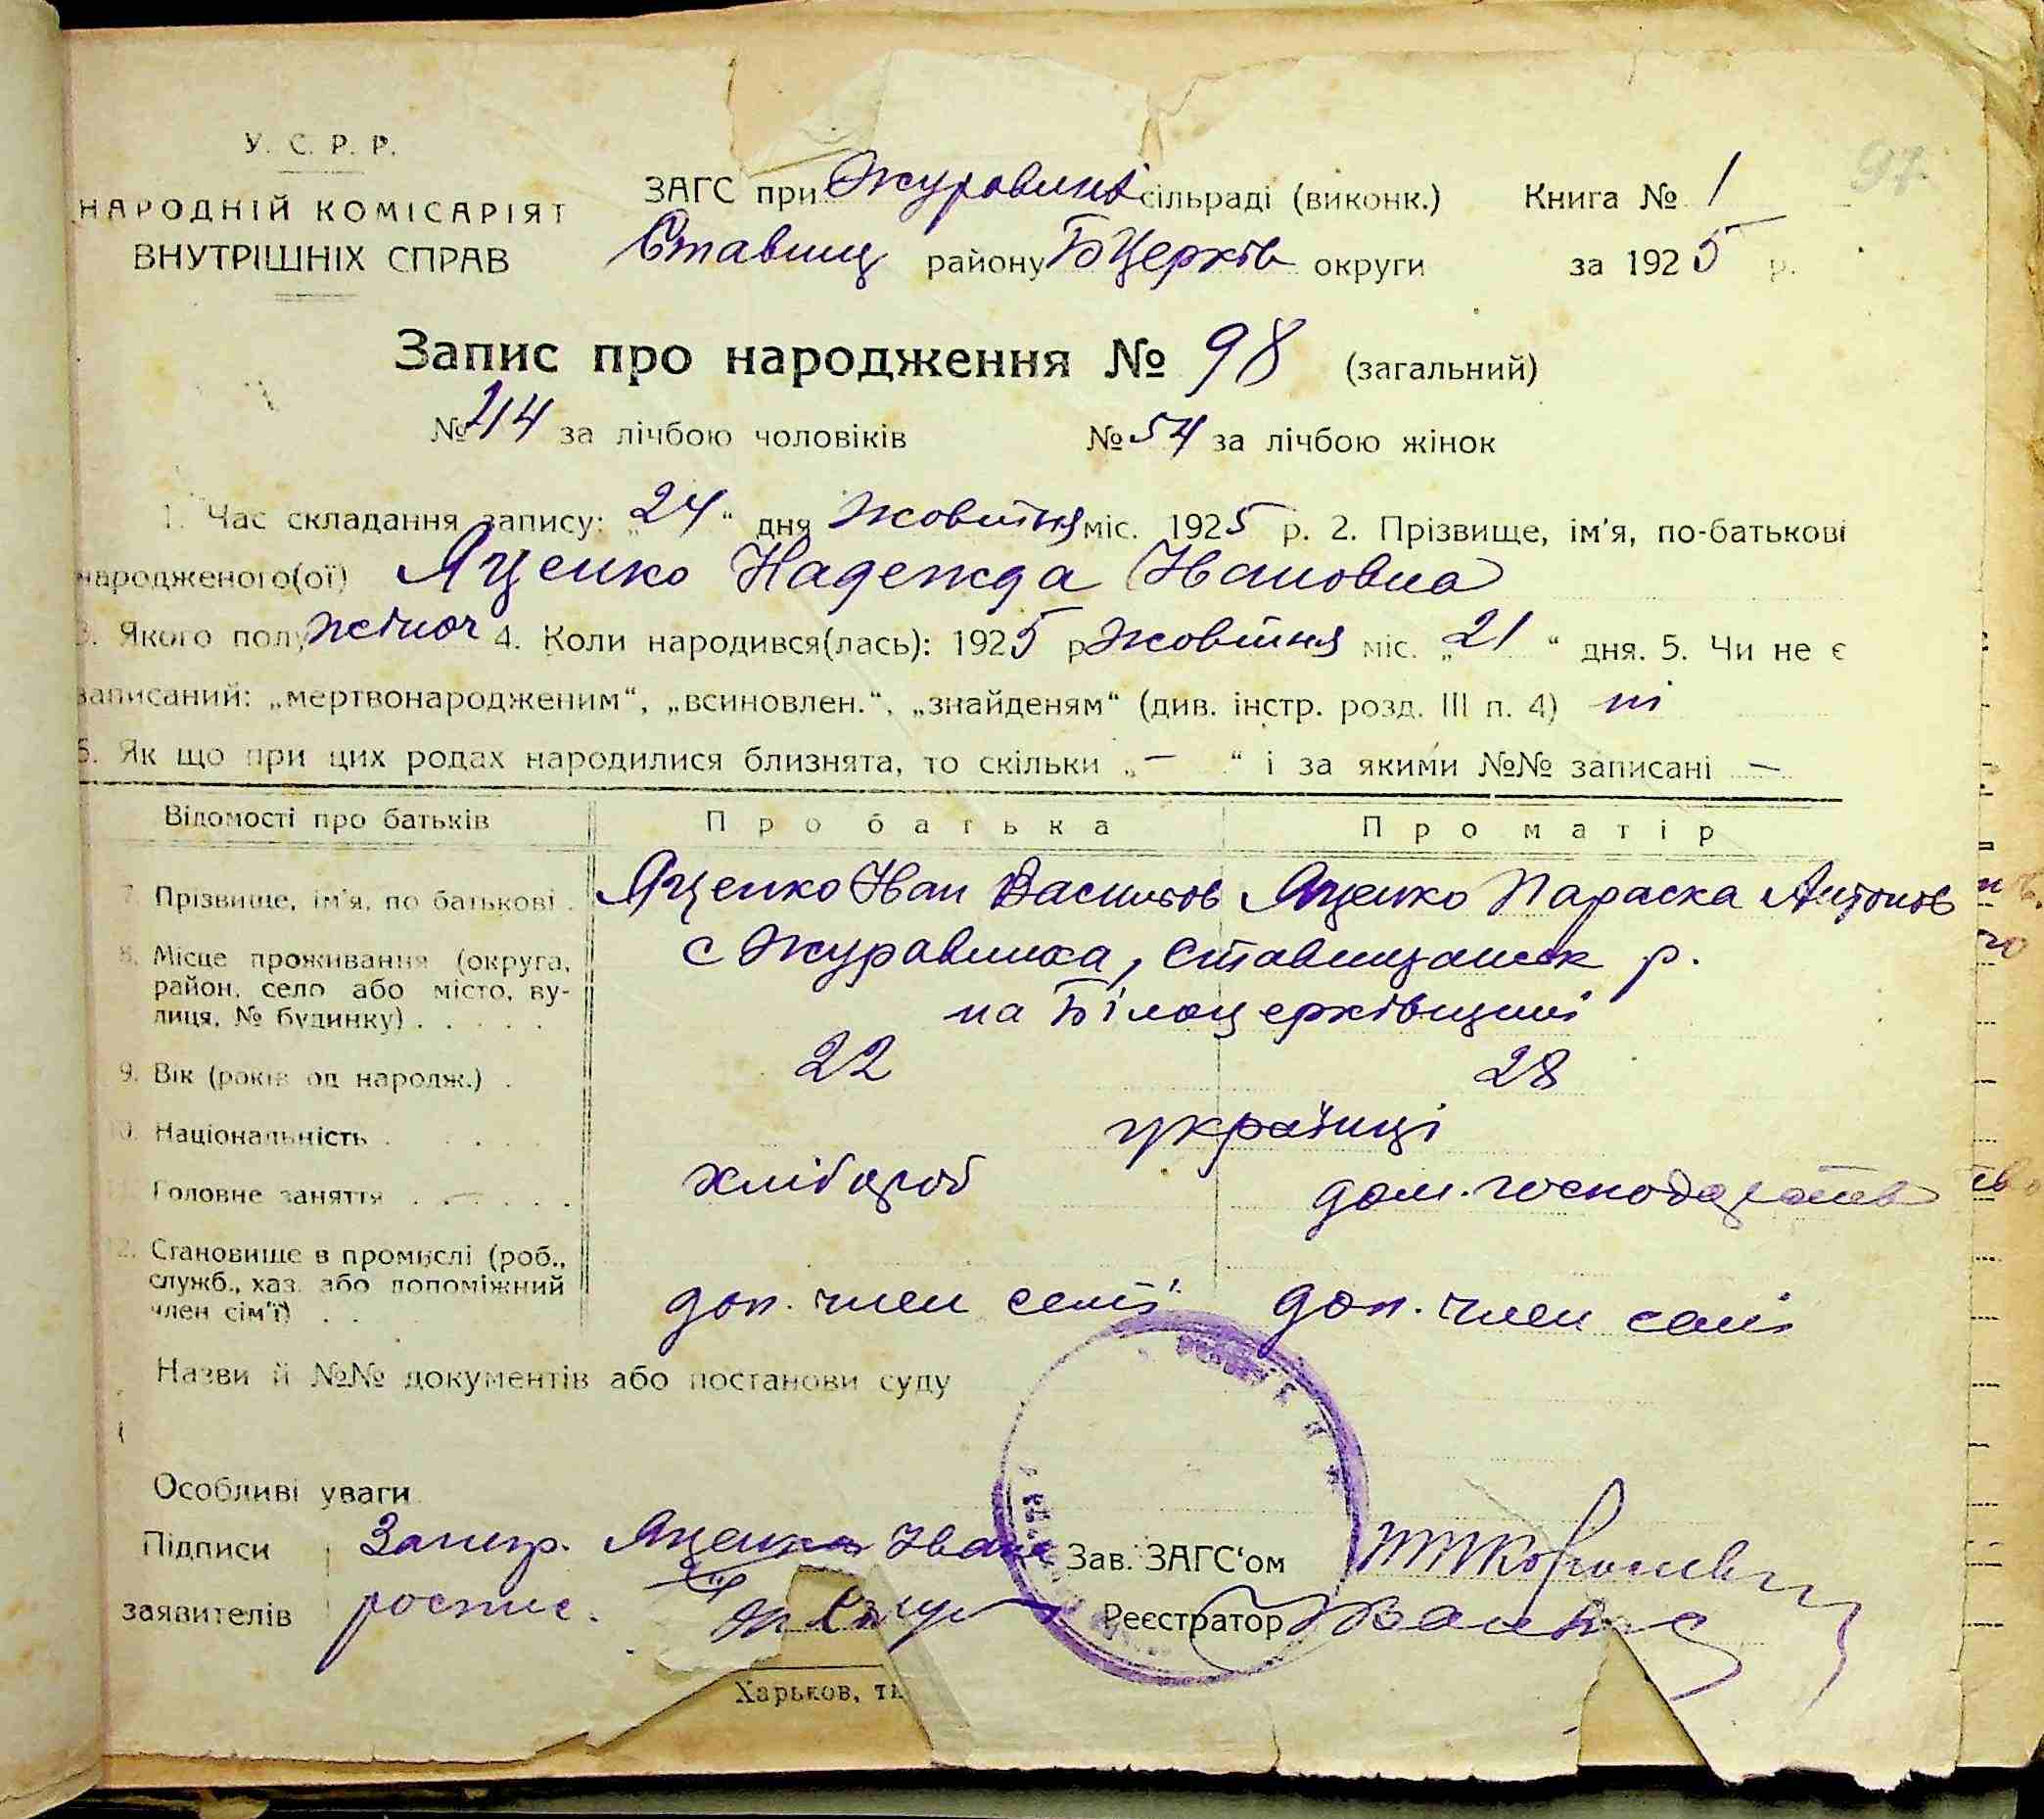 97
У. С. Р. Р.
НАРОДНІЙ КОМІСАРІЯТ
ВНУТРІШНІХ СПРАВ
ЗАГС при Журавлихів сільраді (виконк.)
Ставищ району БЦерків округи
Книга № 1
за 1925 р.
Запис про народження № 98 (загальний)
№ 44 за лічбою чоловіків № 54 за лічбою жінок
1. Час складання запису: „24“ дня жовтня міс. 1925 р. 2. Прізвище, ім'я, по-батькові
народженого(ої) Яценко Надежда Івановна
3. Якого полу жіноч 4. Коли народився(лась): 1925 р жовтня міс. „21“ дня. 5. Чи не є
записаний: „мертвонародженим“, „всиновлен.“, „знайденям“ (див. інстр. розд. III п. 4) ні
6. Як що при цих родах народилися близнята, то скільки „—“ і за якими №№ записані —
Відомості про батьків Про батька Про матір
7. Прізвище, ім'я, по батькові . Яценко Іван Васильов Яценко Параска Антонов
8. Місце проживання (округа, район, село або місто, вулиця, № будинку) . . . . . с Журавлиха, Ставищанськ р.
на Білоцерківщині
9. Вік (років од народж.) . 22 28
10. Національність . . . . . українці
11. Головне заняття . . . . . . хлібороб дом. господарств
12. Становище в промислі (роб., служб., хаз. або допоміжний член сім'ї) . . доп. член семї доп. член семї
Назви й №№ документів або постанови суду
Особливі уваги
Підписи Яценка Івана Зав. ЗАГС'ом
заявителів роспис. Реєстратор
Харьков, ти